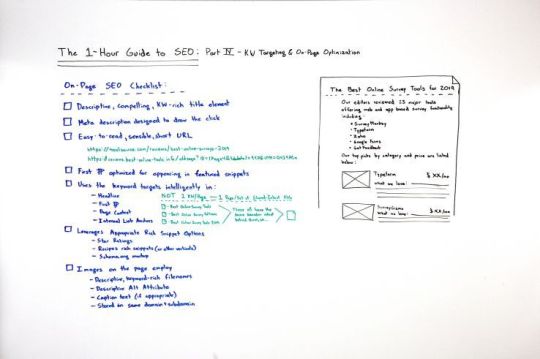 The 1-Hour Guide to SEO: Part IV - KW Targeting & On-Page Optimization
On-Page SEO Checklist:
Descriptive, compelling, KW-rich title element
Meta description designed to draw the click
Easy-to-read, sensible, short URL
First ¶ optimized for appearing in featured snippets
Uses the keyword targets intelligently in:
- Headline
- First ¶
- Page Content
- Internal Link Anchors
NOT 1 KW/Page
- Best Online Survey Tools
- Best Online Survey Software
These all have the same searcher intent
Leverages Appropriate Rich Snippet Options
- Star Ratings
- Recipes rich snippets (or other verticals)
- Schema.org markup
Images on the page employ
- Descriptive, keyword-rich filenames
- Descriptive Alt Attribute
- Caption text (if appropriate)
- Stored on same domain + subdomain
The Best Online Survey Tools for 2019
Our editors reviewed 15 major tools
offering web and app based survey functionality
including:
• SurveyMonkey
• Typeform
• Google Forms
• GetFeedback
Our top picks by category and price are listed
below:
Typeform $ XX/mo
what we love:
SurveyGizmo $ XX/mo
what we love: